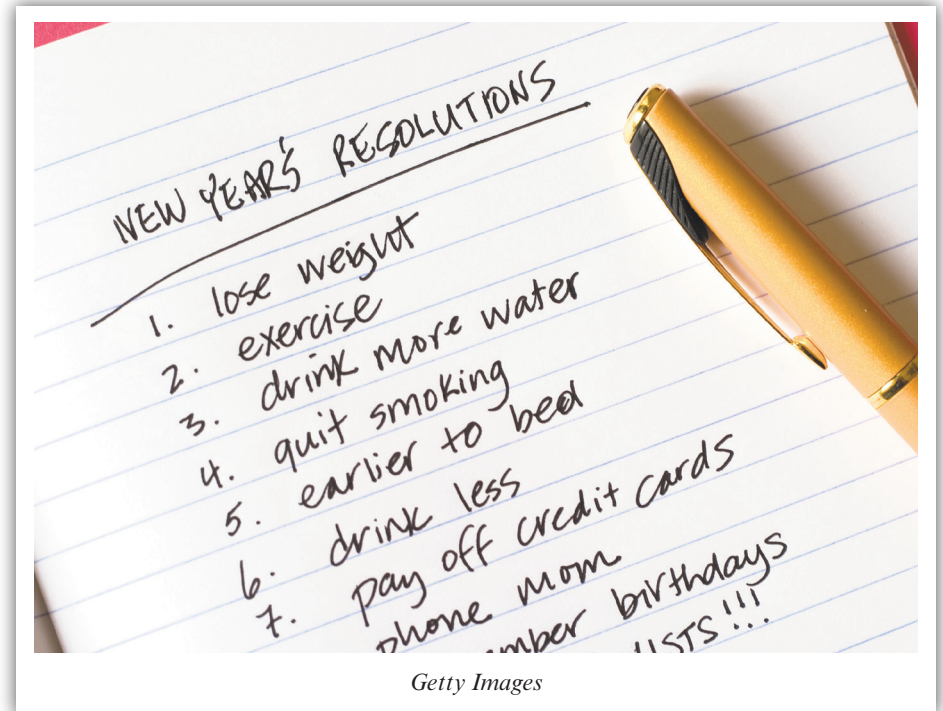 NEW YEAR'S RESOLUTIONS
1. lose weight
2. exercise
3. drink more water
4. quit smoking
5. earlier to bed
6. drink less
7. pay off credit cards
phone mom
mber birthdays
ISTS!!!
Getty Images